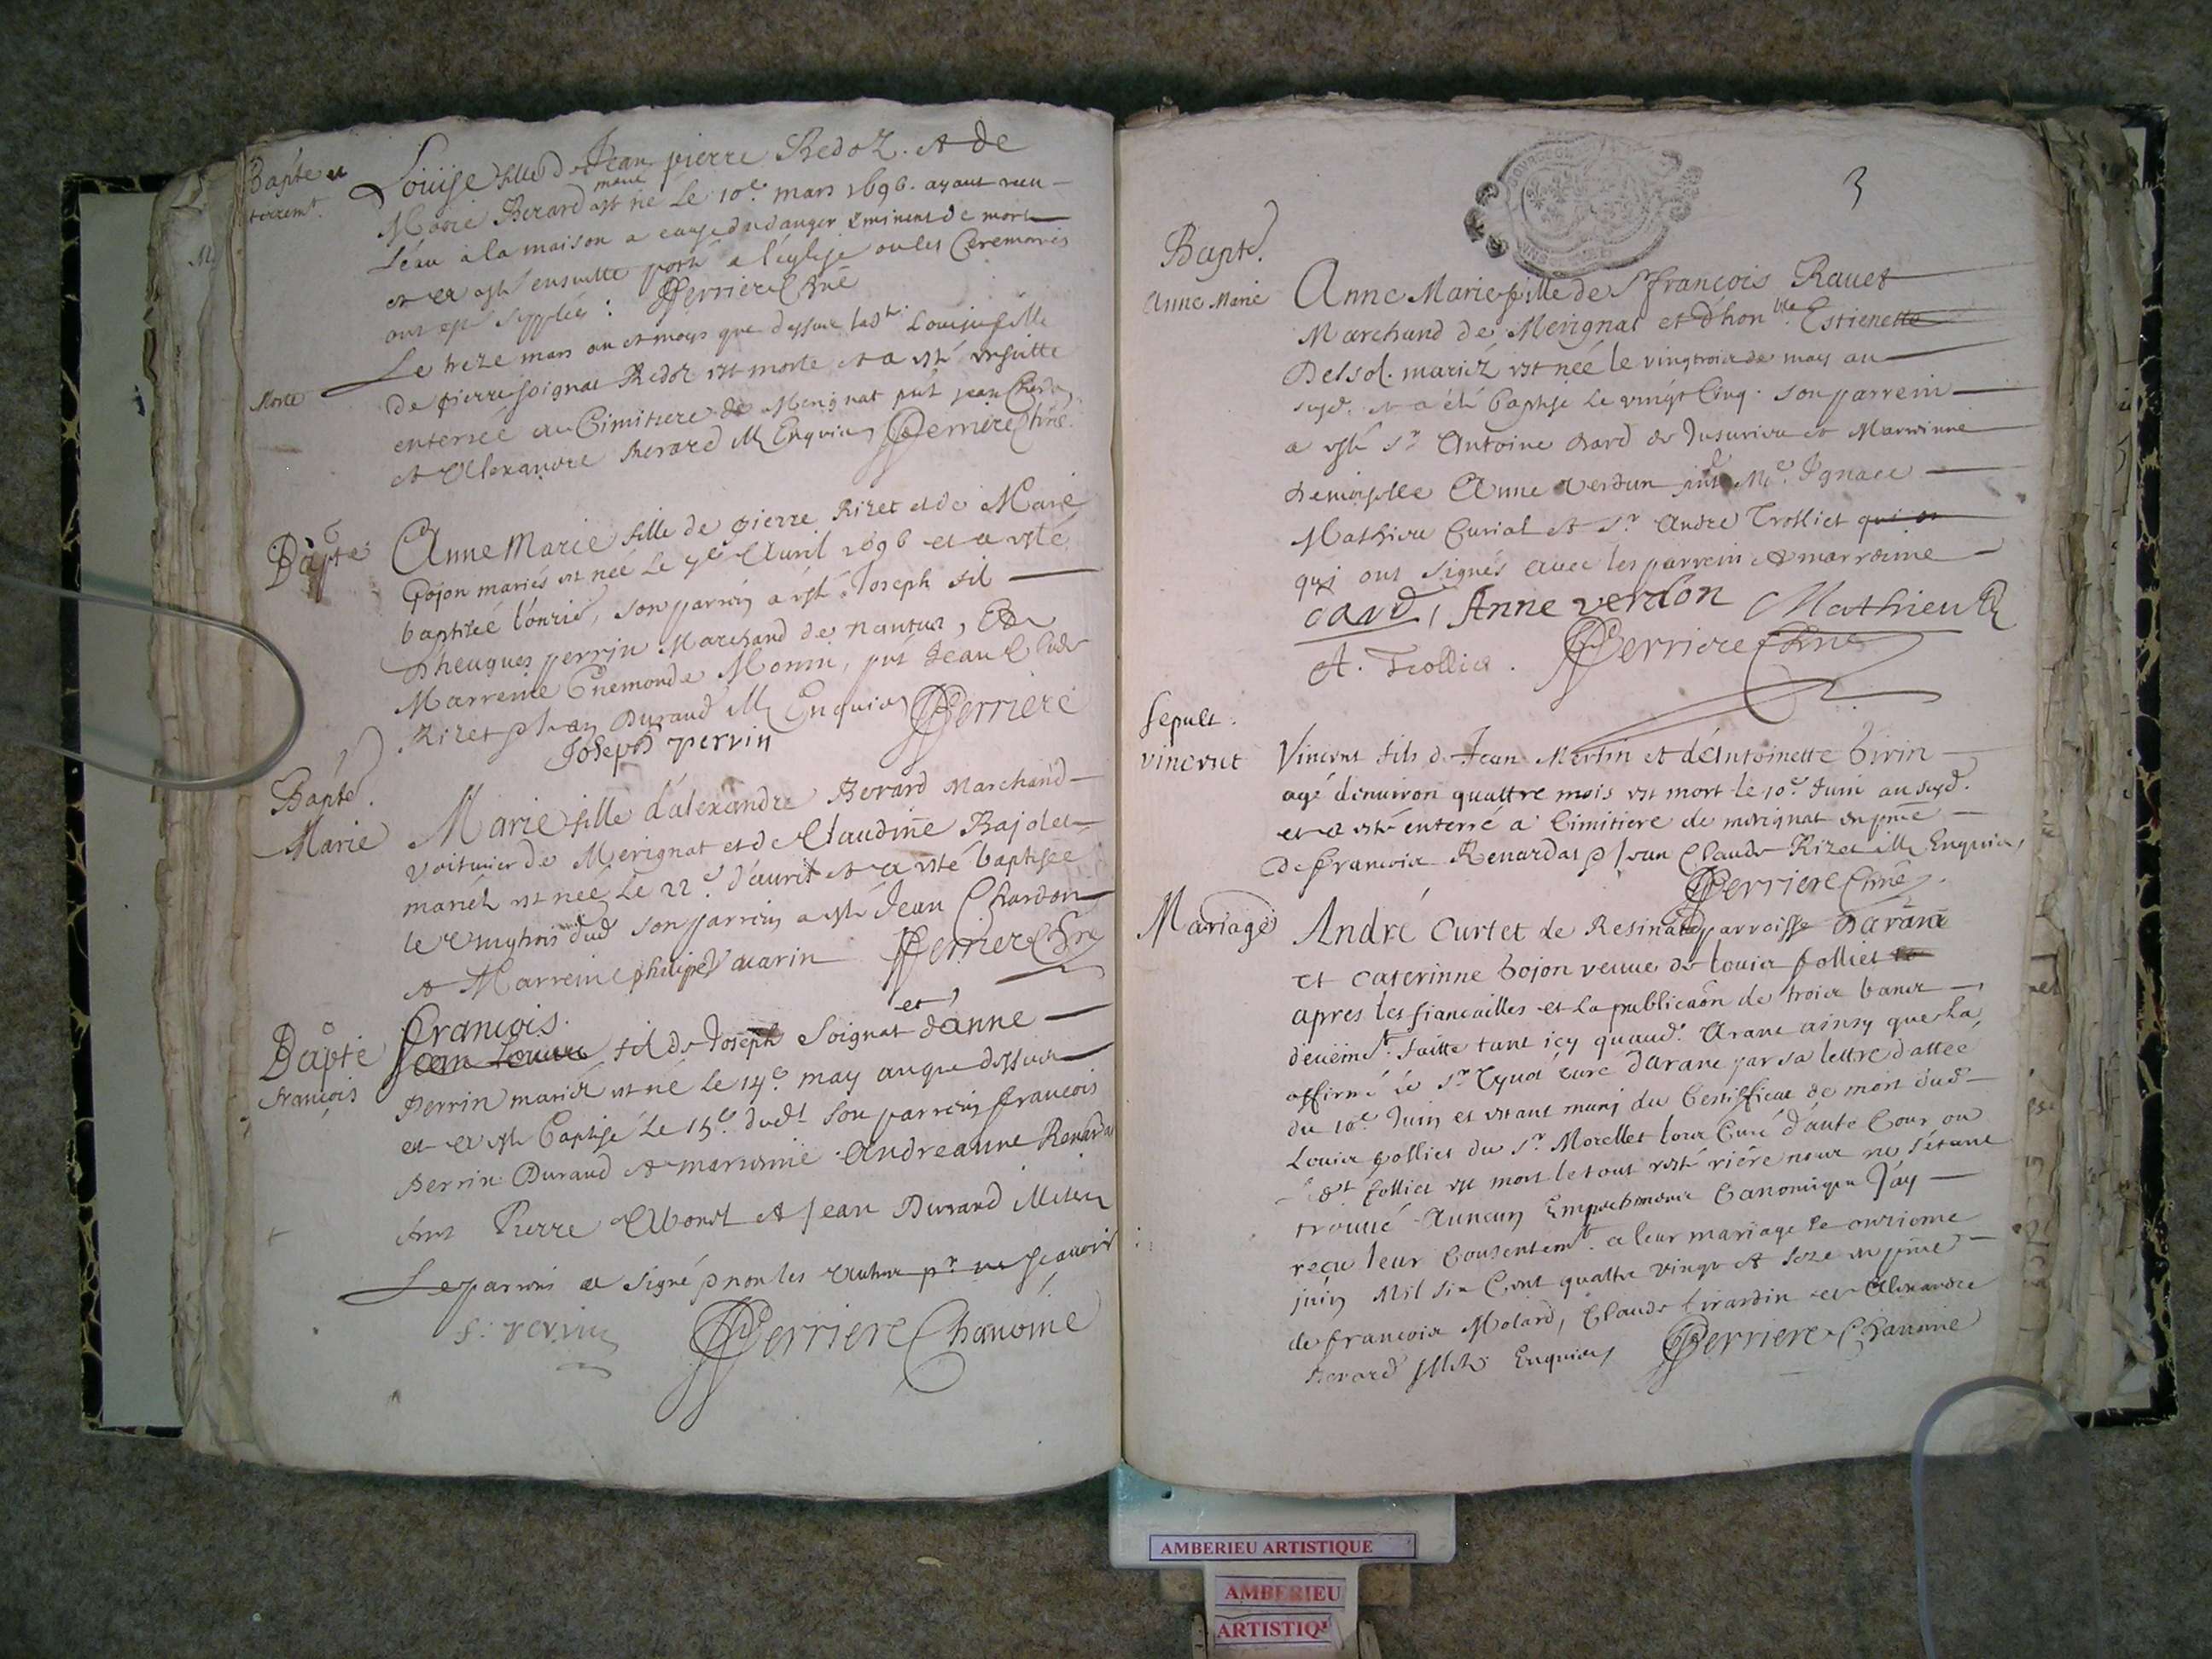 Bapte et
terremt.
Louise fille de Jean pierre Redoz. et de
Marie Berard est né le 10e. mars 1696. ayant receu
l'éau à la maison a cause du danger éminent de mort
et a esté ensuitte porté a l'églyse ou les Ceremonies
ont esté supplées : Perriere Chne
Morte
Le treze mars an et moys que dessus ladte. Louise fille
de pierre soignat Redoz est morte et a esté ensuitte
enterrée au Cimitiere de Merignat pnt jean
et Alexandre Berard Enquis Perriere Chne.
Bapte
Anne Marie fille de pierre Rizet et de Marie
Bojon mariés est née le Auril 1696 et a esté
baptisée l'onzie, son parrein a esté Joseph fil
Dheugues perrin Marchand de nantua, Et
Marreine Enemonde Monin, pnt Jean Claude
Rizet Jean Durand Enquis Perriere
Joseph perrin
Bapte.
Marie
Marie fille d'alexandre Berard Marchand
voiturier de Merignat et de Claudine Bajolet
mariéz est née le 22e. d'auril et a esté baptisée
le dud son parrein a esté Jean Chardon
et Marreine philipe Perriere Chne
Bapte
françois
François.
Jean Louis fil de Joseph Soignat et d'anne
Perrin mariéz est né le 14e. may an que dessus
et a esté Baptisé le 15e. dudt son parrein françois
Perrin Durand et marreine Andreanne Renarda
Pierre et Jean Durand
Le parrein a signé non les autres pr ne sçauoir
f. perrin Perriere Chanoine
3
Bapte.
Anne Marie
Anne Marie fille de Sr françois Rauet
Marchand de Merignat et d'honble. Estienette
Delsol. mariéz est née le vingtroix de may an
susd. et a été baptisé le vingt Cinq. son parrein
a esté Sr Antoine dard de Jusurieu et Marreinne
demoiselle Anne Verdun Me. Ignace
Mathieu Curial et Sr André Trolliet qui
qui ont signés auec les parrein et marreine
dard, Anne verdon Mathieu
A. Trolliet. Perriere Chne
Sepult.
vincent
Vincent fils de Jean Mertin et d'éAntoinette
agé denuiron quattre mois est mort le 10e. Juin an susd.
et a esté enterré a Cimitiere de merignat en pnce
de françois Renardat Jean Claude Rizet Enquis,
Perriere Chne.
Mariage
André Curtet de Resinand parroisse Darane
et Caterinne bojon veuue de louis folliet
apres les fiancailles et la publicaon de trois bancs
deüemt. faitte tant icy quaud. Arane ainsy que la
affirmé le Sr curé darane par sa lettre dattée
du 10e Juin et estant muni du Certifficat de mort dud
Louis folliet du Sr Morellet Curé ou
folliet est mort le tout riére nour ne s'étant
trouué Auncun Empechement Canonique J'ay
reçu leur Consentemt. a leur mariage le onzieme
juin Mil six Cent quattre vingt et seze en pnce
de françois Molard, Claude tirardin et Alexandre
Berard Enquis Perriere Chanoine
AMBERIEU ARTISTIQUE
AMBERIEU
ARTISTIQ